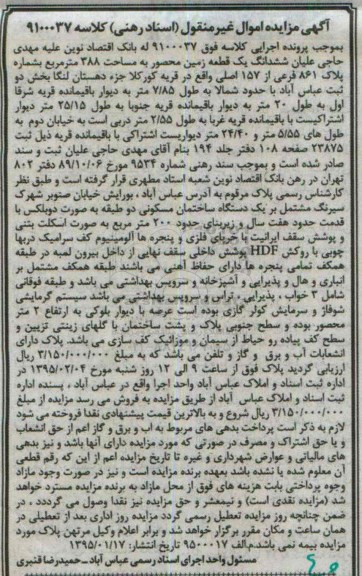 آگهی مزایده اموال غیرمنقول (اسناد رهنی) کلاسه ۹۱۰۰۰۳۷
بموجب پرونده اجرایی کلاسه فوق ۹۱۰۰۰۳۷ له بانک اقتصاد نوین علیه مهدی
حاجی علیان ششدانگ یک قطعه زمین محصور به مساحت ۳۸۸ مترمربع بشماره
پلاک ۸۶۱ فرعی از ۱۵۷ اصلی واقع در قریه کورکلا جزء دهستان لنگا بخش دو
ثبت عباس آباد با حدود شمالا به طول ۷/۸۵ متر به دیوار باقیمانده قریه شرقا
اول به طول ۲۰ متر به دیوار باقیمانده قریه جنوبا به طول ۲۵/۱۵ متر دیوار
اشتراکیست با باقیمانده قریه غربا به طول ۲/۵۵ متر دربی است به خیابان دوم به
طول های ۵/۵۵ متر و ۲۴/۴۰ متر دیواریست اشتراکی با باقیمانده قریه ذیل ثبت
۲۳۸۷۵ صفحه ۱۰۸ دفتر جلد ۱۹۴ بنام آقای مهدی حاجی علیان ثبت و سند
صادر شده است و بموجب سند رهنی شماره ۹۵۳۴ مورخ ۸۹/۱۰/۰۶ دفتر ۸۰۲
تهران در رهن بانک اقتصاد نوین شعبه استاد مطهری قرار گرفته است و طبق نظر
کارشناس رسمی پلاک مرقوم به آدرس عباس آباد ، بورایش خیابان صنوبر شهرک
سیرنگ مشتمل بر یک دستگاه ساختمان مسکونی دو طبقه به صورت دوبلکس با
قدمت حدود هفت سال و زیربنای حدود ۲۰۰ متر مربع به صورت اسکلت بتنی
و پوشش سقف ایرانیت با خرپای فلزی و پنجره ها آلومینیوم کف سرامیک دربها
چوبی با روکش HDF پوشش داخلی سقف نهایی از داخل بیرون لمبه در طبقه
همکف تمامی پنجره ها دارای حفاظ آهنی می باشند طبقه همکف مشتمل بر
انباری و هال و پذیرایی و آشپزخانه و سرویس بهداشتی می باشد و طبقه فوقانی
شامل ۳ خواب ، پذیرایی ، تراس و سرویس بهداشتی می باشد سیستم گرمایشی
شوفاژ و سرمایش کولر گازی بوده است عرصه با دیوار بلوکی به ارتفاع ۲ متر
محصور بوده و سطح جنوبی پلاک و پشت ساختمان با گلهای زینتی تزیین و
سطح کف پیاده رو حیاط از سیمان و موزائیک کف سازی می باشد. پلاک دارای
انشعابات آب و برق و گاز و تلفن می باشد که به مبلغ ۳/۱۵۰/۰۰۰/۰۰۰ ریال
ارزیابی گردید پلاک فوق از ساعت ۹ الی ۱۲ روز شنبه مورخ ۱۳۹۵/۰۲/۰۴ در
اداره ثبت اسناد و املاک عباس آباد واحد اجرا واقع در عباس آباد ، پسنده اداره
ثبت اسناد و املاک عباس آباد از طریق مزایده به فروش می رسد مزایده از مبلغ
۳/۱۵۰/۰۰۰/۰۰۰ ریال شروع و به بالاترین قیمت پیشنهادی نقدا فروخته می شود
لازم به ذکر است پرداخت بدهی های مربوط به آب و برق و گاز اعم از حق انشعاب
و یا حق اشتراک و مصرف در صورتی که مورد مزایده دارای آنها باشد و نیز بدهی
های مالیاتی و عوارض شهرداری و غیره تا تاریخ مزایده اعم از این که رقم قطعی
آن معلوم شده یا نشده باشد بعهده برنده مزایده است و نیز در صورت وجود مازاد
وجوه پرداختی بابت هزینه های فوق از محل مازاد به برنده مزایده مسترد خواهد
شد (مزایده نقدی است) و نیمعشر و حق مزایده نیز نقدا وصول می گرددد ، در
ضمن چنانچه روز مزایده تعطیل رسمی گردد مزایده روز اداری بعد از تعطیلی در
همان ساعت و مکان مقرر برگزار خواهد شد و برابر اعلام وکیل مرتهن پلاک مورد
مزایده بیمه نمی باشد.م.الف ۹۵۰۰۰۱۷ تاریخ انتشار: ۱۳۹۵/۰۱/۱۷
مسئول واحد اجرای اسناد رسمی عباس آباد ـ حمیدرضا قنبری